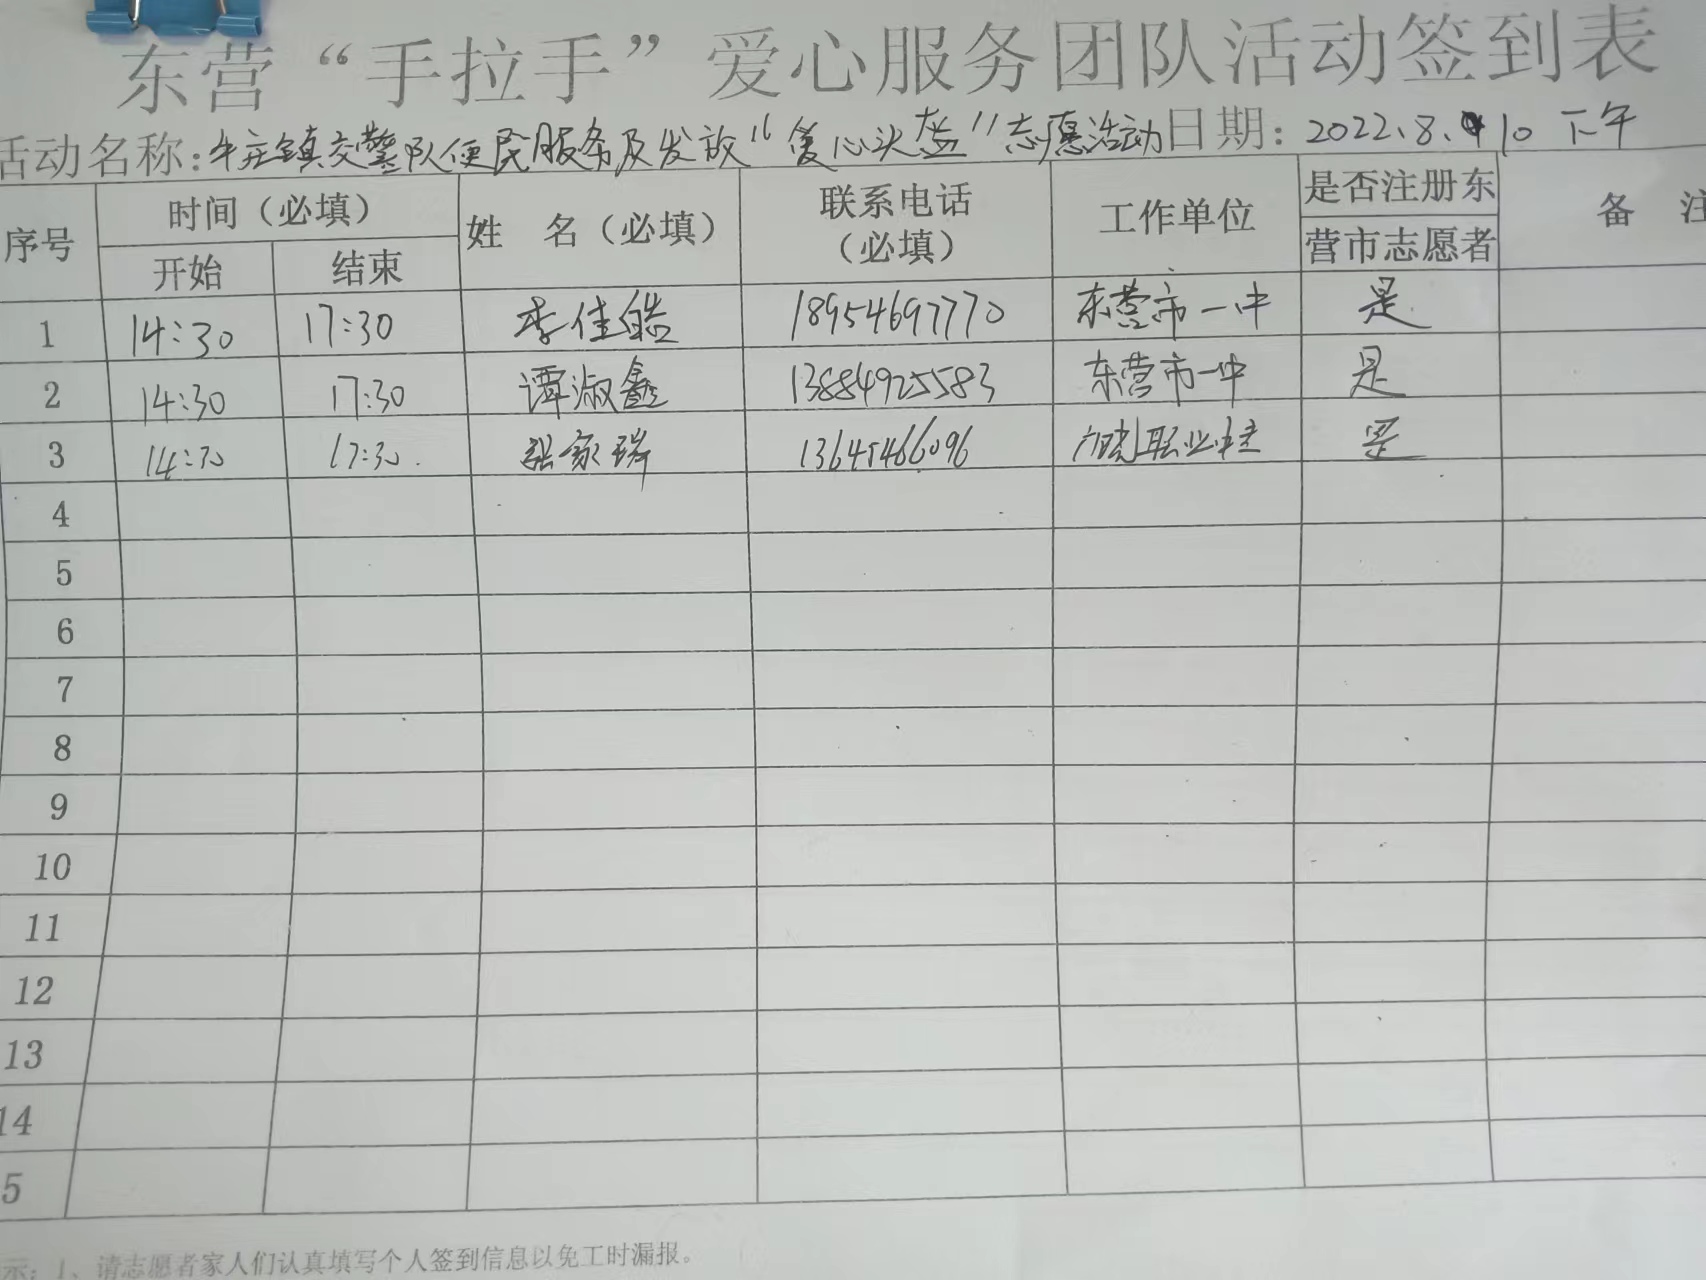 东营“手拉手”爱心服务团队活动签到表
活动名称：牛庄镇交警队便民服务及发放“爱心头盔”志愿活动 日期：2022.8.10 下午
序号 时间（必填） 姓 名（必填） 联系电话（必填） 工作单位 是否注册东营市志愿者 备 注
开始 结束
1 14:30 17:30 李佳皓 18954697770 东营市一中 是
2 14:30 17:30 谭淑鑫 13884925583 东营市一中 是
3 14:30 17:30. 张家瑞 13645466096 职业中专 是
4
5
6
7
8
9
10
11
12
13
14
5
示：1、请志愿者家人们认真填写个人签到信息以免工时漏报。